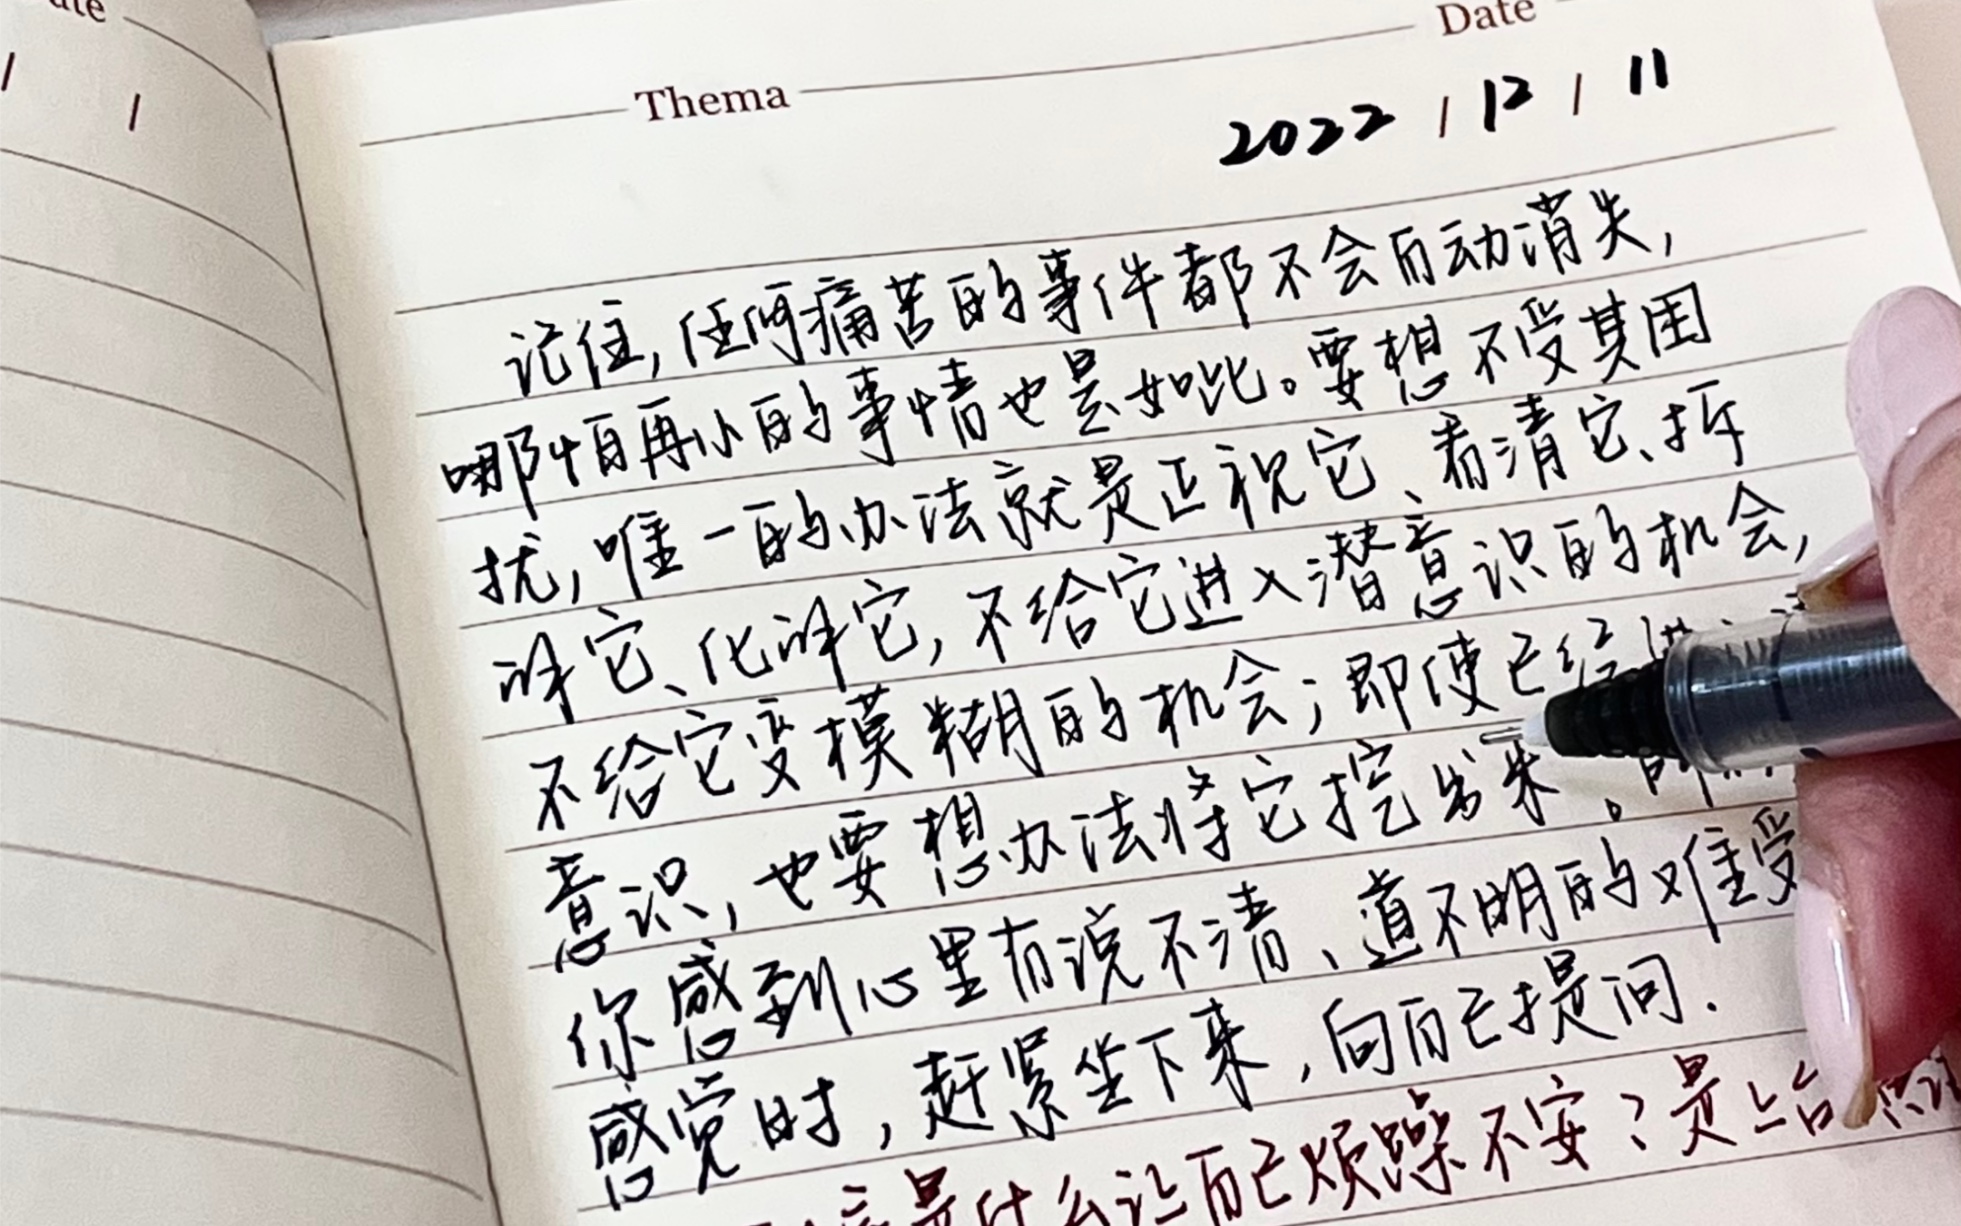 Date
Thema
2022 / 12 / 11
记住,任何痛苦的事件都不会自动消失,
哪怕再小的事情也是如此。要想不受其困
扰,唯一的办法就是正视它、看清它、拆
解它、化解它,不给它进入潜意识的机会,
不给它变模糊的机会;即使已经进
意识,也要想办法将它挖出来。
你感到心里有说不清、道不明的难受
感觉时,赶紧坐下来,向自己提问.
是什么让自己烦躁不安?是